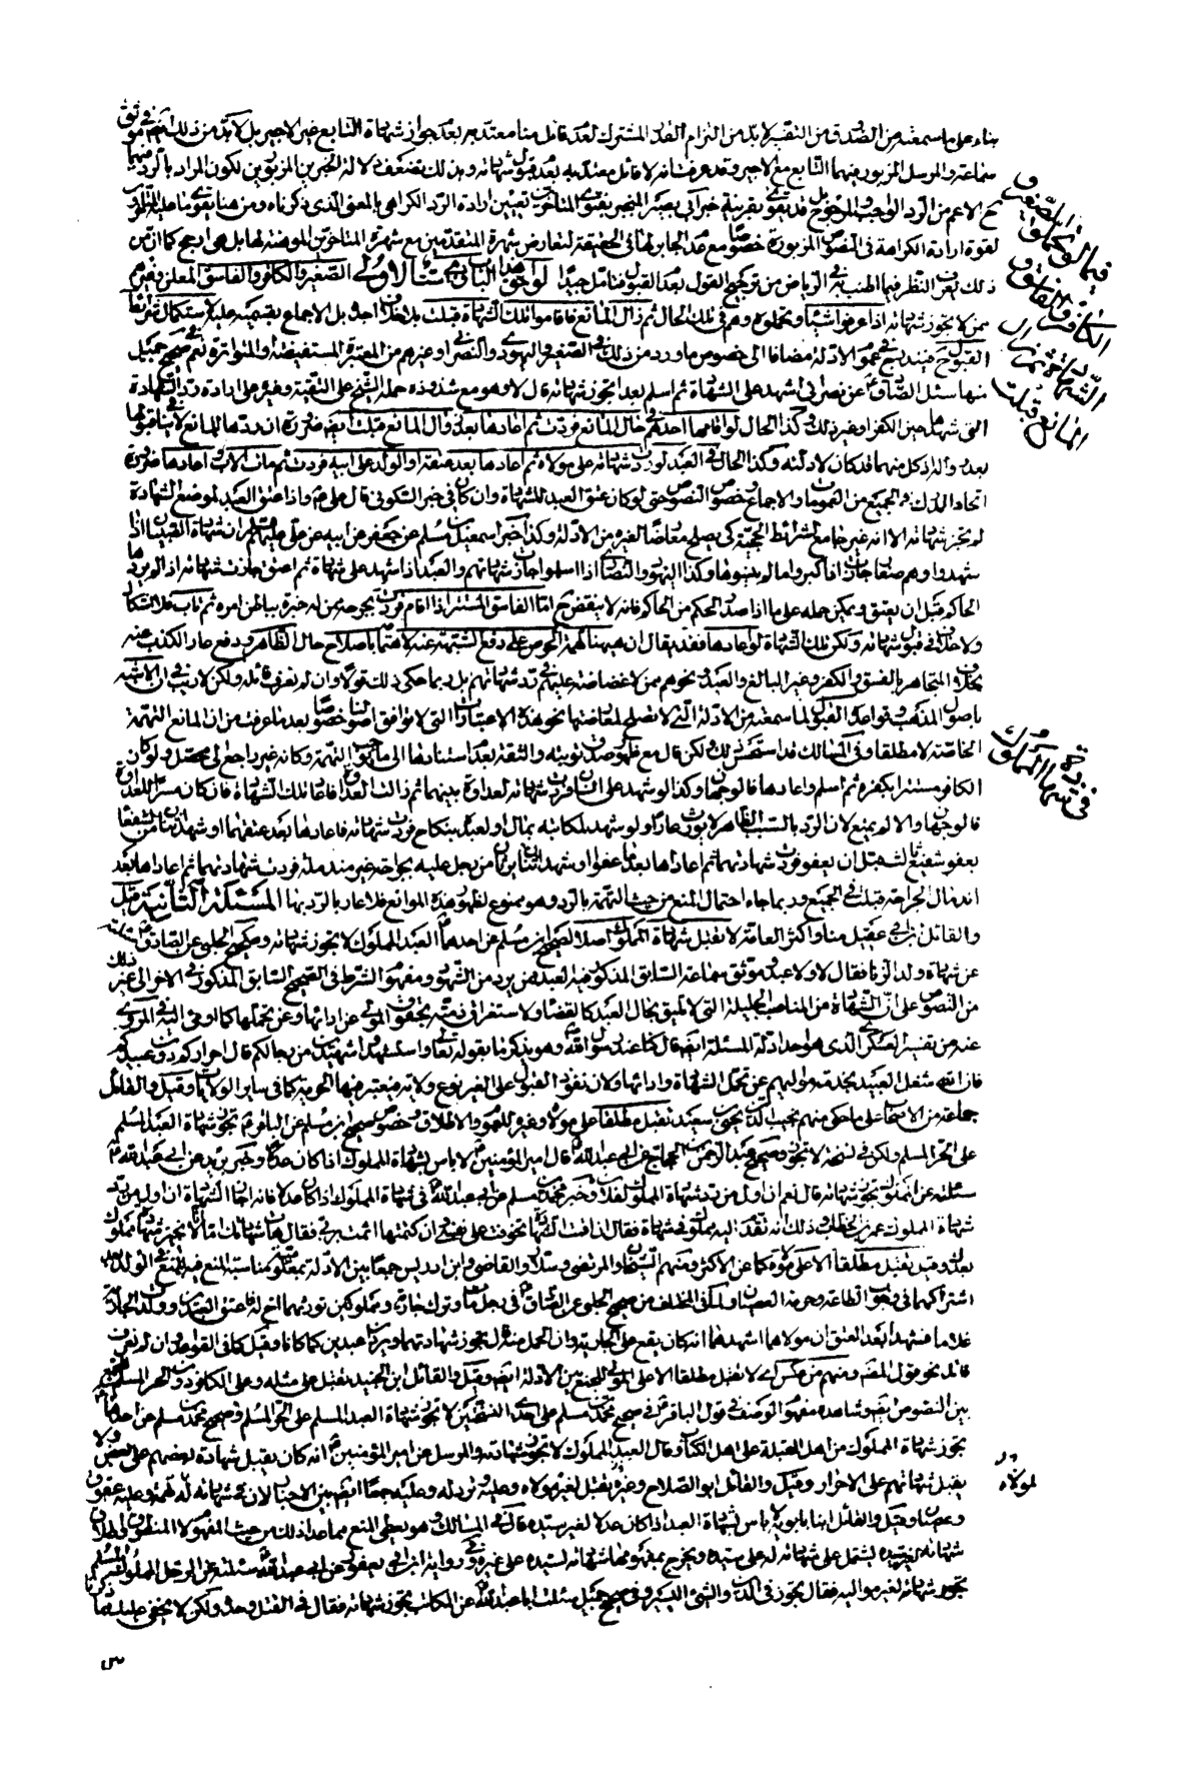 بناء على ما سمعته من الصدوق من التفسير لابد من التزام القدر المشترك لعدم قائل منا معتد به بعدم جواز شهادة التابع غير الاجير بل لابد من ذلك
سماعة والمرسل المزبور فيهما التابع مع الاجير وقد عرفت انه لا قائل معتد به بعدم قبول شهادته وبذلك يضعف دلالة الخبرين المزبورين لكون المراد بالرد فيهما
ح الاعم من الرد الواجب والمرجوح بل قد يقوى بقرينة خبر ابي بصير المنجبر بفتوى المتاخرين تعين ارادة الرد الكراهي بالمعنى الذي ذكرناه ومن هنا يقوى
لقوة ارادة الكراهة في النصوص المزبورة خصوصا مع عدم الجابر لها في الحقيقة لتعارض شهرة المتقدمين مع شهرة المتاخرين الموهنة لها بل هي ارجح كما ان من
ذلك يعرف النظر فيما اطنب به في الرياض من ترجيح القول بعدم القبول فتامل جيدا لواحق هذا الباب وهي ست الاولى الصغير والكافر والفاسق المعلن وغيرهم
ممن لا يجوز شهادته اذا عرفوا شيئا وتحملوه وهم في تلك الحال ثم زال المانع فاقاموا تلك الشهادة قبلت بلا خلاف اجده بل الاجماع بقسميه عليه لاستكمال شرائط
القبول ح فيندرج في عموم الادلة مضافا الى خصوص ما ورد من ذلك في الصغير واليهودي والنصراني وغيرهم من المعتبرة المستفيضة او المتواترة نعم في صحيح جميل
منها سئل الصادق ع عن نصراني اشهد على الشهادة ثم اسلم بعد اتجوز شهادته قال لا وهو مع شذوذه حمله الشيخ على التقية وغيره على ارادة رد الشهادة
التي شهد بها حين الكفر او غير ذلك وكذا الحال لو اقامها احدهم في حال المانع فردت ثم اعادها بعد زوال المانع قبلت ايضا ضرورة ان ردها للمانع لا ينافي قبولها
بعده والرد كل منهما قد كان لادلته وكذا الحال في العبد لو ردت شهادته على مولاه ثم اعادها بعد عتقه او الولد على ابيه فردت ثم مات الاب اعادها ضرورة
اتحاد المدرك في الجميع من العمومات والاجماع وخصوص النصوص حتى لو كان عتق العبد للشهادة وان كان في خبر السكوني قال علي ع واذا عتق العبد لموضع الشهادة
لم تجز شهادته الا انه غير جامع لشرائط الحجية كي يصلح معارضا لغيره من الادلة وكذا خبر اسمعيل بن مسلم عن جعفر عن ابيه عن علي عليهم السلام ان شهادة الصبيان اذا
شهدوا وهم صغار جازت اذا كبروا ما لم ينسوها وكذا اليهود والنصارى اذا اسلموا جازت شهادتهم والعبد اذا شهد على شهادة ثم اعتق جازت شهادته اذا لم يردها
الحاكم قبل ان يعتق ويمكن حمله على ما اذا صدر الحكم من الحاكم فانه لا ينقض ح اما الفاسق المستتر اذا اقام فردت بجرحه ممن له خبرة بباطن امره ثم تاب فلا اشكال
ولا خلاف في قبول شهادته ولكن تلك الشهادة لو اعادها فقد يقال ان هيهنا تهمة الحرص على دفع الشبهة عنه لاهتمامه باصلاح حال الظاهر ودفع عار الكذب عنه
بخلاف المتجاهر بالفسق والكفر وغير البالغ والعبد ونحوهم ممن لا غضاضة عليهم في رد شهادتهم بل ربما حكى ذلك قولا وان لم نعرف قائله ولكن لا ريب في ان الاشبه
باصول المذهب وقواعده القبول لما سمعته من الادلة التي لا تصلح لمعارضتها نحو هذه الاعتبارات التي لا توافق اصولنا خصوصا بعد ما عرفت من ان المانع التهمة
الخاصة لا مطلقا وفي المسالك قد استحسن ذلك ولكن قال مع ظهور صدق توبته والثقة بعدم استنادها الى ما يوجب التهمة وكانه غير راجع الى محصل ولو كان
الكافر مستترا بكفره ثم اسلم واعادها فالوجهان وكذا لو شهد على انسان فردت شهادته لعداوة بينهما ثم زالت العداوة فاعاد تلك الشهادة فان كان مسرا للعداوة
فالوجهان والا لم يمنع لان الرد بالسبب الظاهر لا يورث عارا ولو شهد لمكاتبه بمال او لعبده بنكاح فردت شهادته فاعادها بعد عتقهما او شهد اثنان من الشفعاء
بعفو شفيع ثالث قبل ان يعفو فردت شهادتهما ثم اعاداها بعد ما عفوا او شهد اثنان يرثان من رجل عليه بجراحة غير مندملة فردت شهادتهما ثم اعاداها بعد
اندمال الجراحة قبلت في الجميع وربما جاء احتمال المنع من حيث التهمة بالرد وهو ممنوع لظهور هذه الموانع فلا عار بالرد بها المسئلة الثانية قيل
والقائل ابن ابي عقيل منا واكثر العامة لا تقبل شهادة المملوك اصلا لصحيح ابن مسلم عن احدهما ع العبد المملوك لا يجوز شهادته وصحيح الحلبي عن الصادق ع سئلته
عن شهادة ولد الزنا فقال لا ولا عبد وموثق سماعة السابق المذكور فيه العبد ممن يرد من الشهود ومفهوم الشرط في الصحيح السابق المذكور في الاحرار الى غير ذلك
من النصوص على ان الشهادة من المناصب الجليلة التي لا تليق بحال العبد كالقضاء ولاستغراق وقته بحقوق المولى عن ادائها وعن تحملها كما اومى اليه في المروي
عنه من تفسير العسكري الذي هو احد ادلة المسئلة ايضا قال كنا عند رسول الله ص وهو يذكرنا بقوله تعالى واستشهدوا شهيدين من رجالكم قال احراركم دون عبيدكم
فان الله شغل العبيد بخدمة مواليهم عن تحمل الشهادة وادائها ولان نفوذ القول على الغير نوع ولاية فيعتبر فيها الحرية كما في ساير الولايات وقيل والقائل
جماعة من الاصحاب على ما حكى منهم نجيب الدين يحيى بن سعيد تقبل مطلقا على مولاه وغيره للعموم والاطلاق وخصوص صحيح ابن مسلم عن الباقر ع تجوز شهادة العبد المسلم
على الحر المسلم ولكن في نسخة لا تجوز وصحيح عبد الرحمن بن الحجاج عن ابي عبد الله ع قال امير المؤمنين ع لا باس بشهادة المملوك اذا كان عدلا وخبر بريد عن ابي عبد الله ع
سئلته عن المملوك تجوز شهادته قال نعم ان اول من رد شهادة المملوك لفلان وخبر محمد بن مسلم عن ابي عبد الله ع في شهادة المملوك اذا كان عدلا فانه جائز الشهادة ان اول من رد
شهادة المملوك عمر بن الخطاب وذلك انه تقدم اليه مملوك في شهادة فقال ان اقمت الشهادة تخوفت على نفسي وان كتمتها اثمت بربي فقال هات شهادتك اما انا لا نجيز شهادة مملوك
بعدك وقيل تقبل مطلقا الا على مولاه كما عن الاكثر ومنهم الشيخان والمرتضى وسلار والقاضي وابن ادريس جمعا بين الادلة بمعلومية مناسبة المنع فيه للمنع في الولد بعد
اشتراكهما في وجوب الطاعة وحرمة العصيان ولما في المختلف من صحيح الحلبي عن الصادق ع في رجل مات وترك جارية ومملوكين فورثهما اخ له فاعتق العبدين وولدت الجارية
غلاما فشهدا بعد العتق ان مولاهما اشهدهما انه كان يقع على الجارية وان الحمل منه قال تجوز شهادتهما ويردان عبدين كما كانا وقيل كما في القواعد وان لم نعرف
قائله نحو قول المفيد ومنهم من عكس اي لا تقبل مطلقا الا على المولى للجمع بين الادلة ايضا وقيل والقائل ابن الجنيد تقبل على مثله وعلى الكافر دون الحر المسلم
بين النصوص ايضا وشاهده مفهوم الوصف في قول الباقر ع في صحيح محمد بن مسلم على احدى النسختين لا تجوز شهادة العبد المسلم على الحر المسلم وصحيح محمد بن مسلم عن احدهما ع
تجوز شهادة المملوك من اهل القبلة على اهل الكتاب وقال العبد المملوك لا تجوز شهادته والمرسل عن امير المؤمنين ع انه كان يقبل شهادة بعضهم على بعض ولا
يقبل شهادتهم على الاحرار وقيل والقائل ابو الصلاح وغيره تقبل لغير مولاه وعليه وترد له وعليه جمعا ايضا بين الاخبار لان في شهادته له تهمة وعليه عقوق
وعصيان وقيل والقائل ابنا بابويه لا باس بشهادة العبد اذا كان عدلا لغير سيده قال في المسالك وهو يعطي المنع مما عدا ذلك من حيث المفهوم لا المنطوق واطلاق
شهادته لغير سيده يشمل على شهادته له على سيده ويخرج بمفهومها شهادته لسيده على غيره وفي رواية ابن ابي يعفور عن ابي عبد الله ع سئلته عن الرجل المملوك المسلم
تجوز شهادته لغير مواليه فقال تجوز في الدين والشيء اليسير وفي صحيح جميل سئلت ابا عبد الله ع عن المكاتب تجوز شهادته فقال في القتل وحده ولكن لا يخفى عليك ما
فيما لو تحملوا الصغير و
الكافر والفاسق و
الشهادة ثم زال
المانع قبلت
في شهادة المملوك
لمولاه